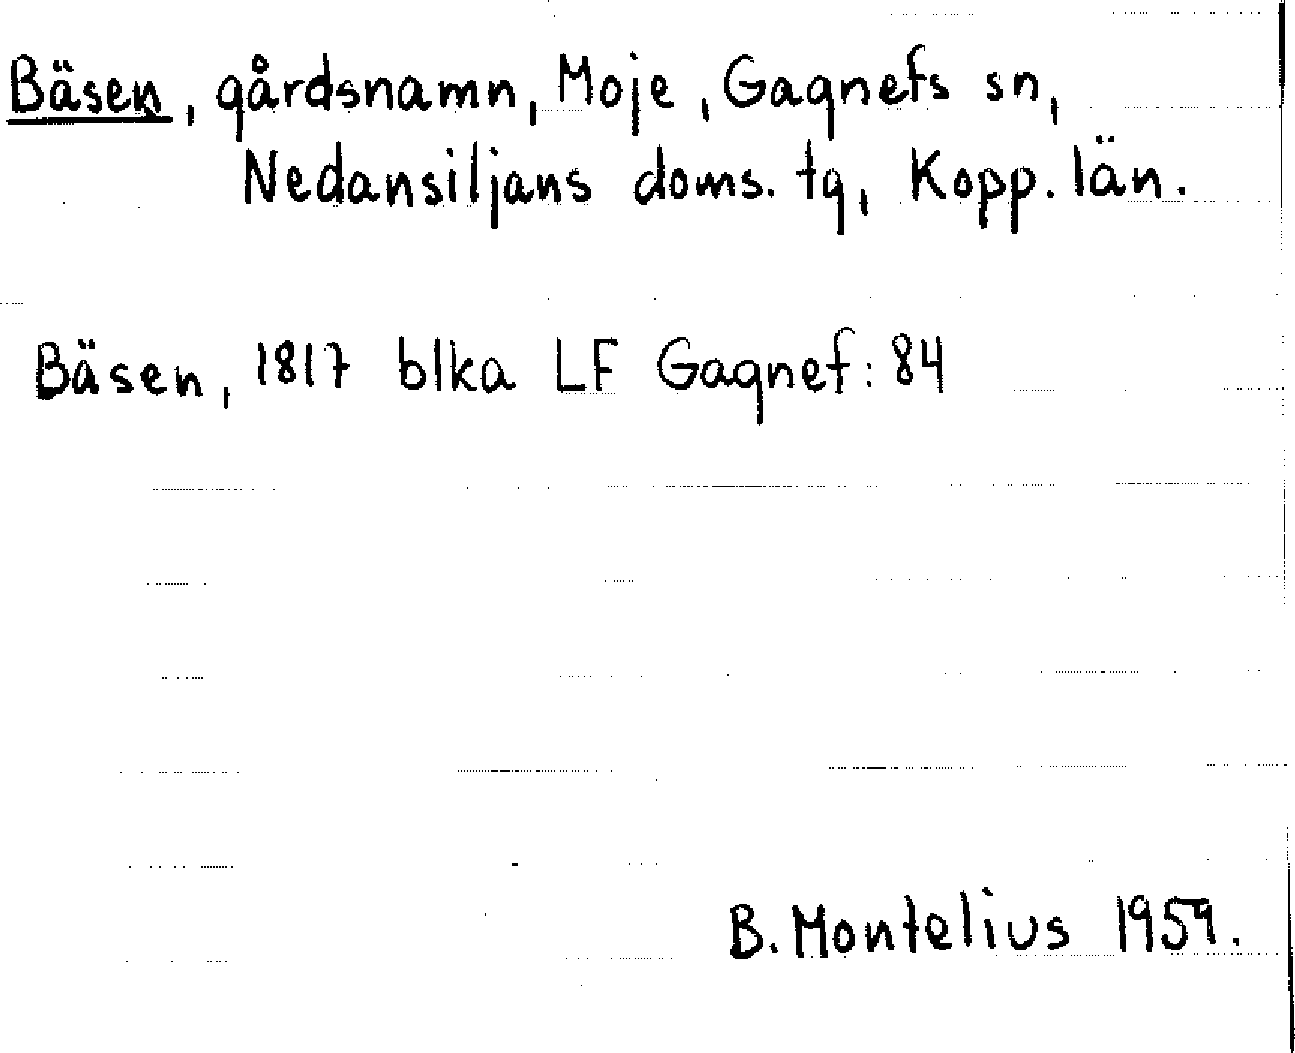 Bäsen, gårdsnamn, Moje, Gagnefs sn,
Nedansiljans doms. tg, Kopp. län.
Bäsen, 1817 blka LF Gagnef: 84
B. Montelius 1959.